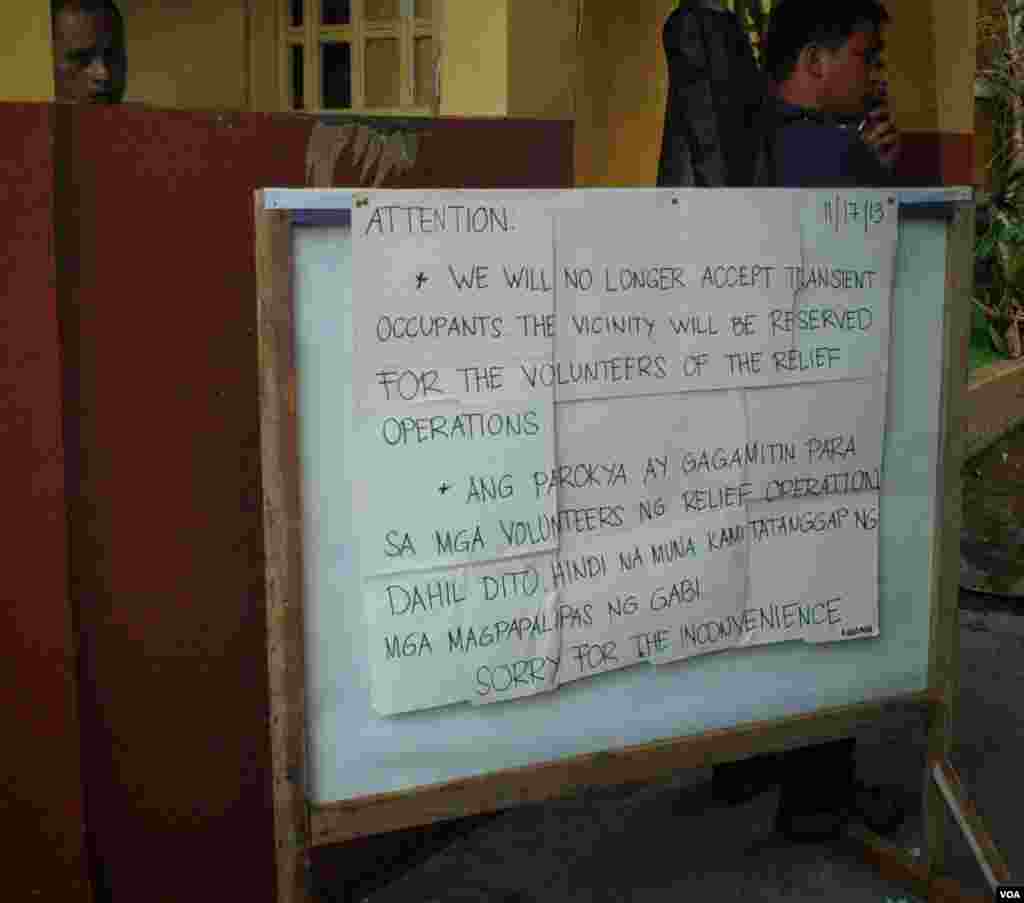 ATTENTION. 11/17/13
* WE WILL NO LONGER ACCEPT TRANSIENT
OCCUPANTS THE VICINITY WILL BE RESERVED
FOR THE VOLUNTEERS OF THE RELIEF
OPERATIONS
* ANG PAROKYA AY GAGAMITIN PARA
SA MGA VOLUNTEERS NG RELIEF OPERATION
DAHIL DITO HINDI NA MUNA KAMI TATANGGAP NG
MGA MAGPAPALIPAS NG GABI
SORRY FOR THE INCONVENIENCE
VOA